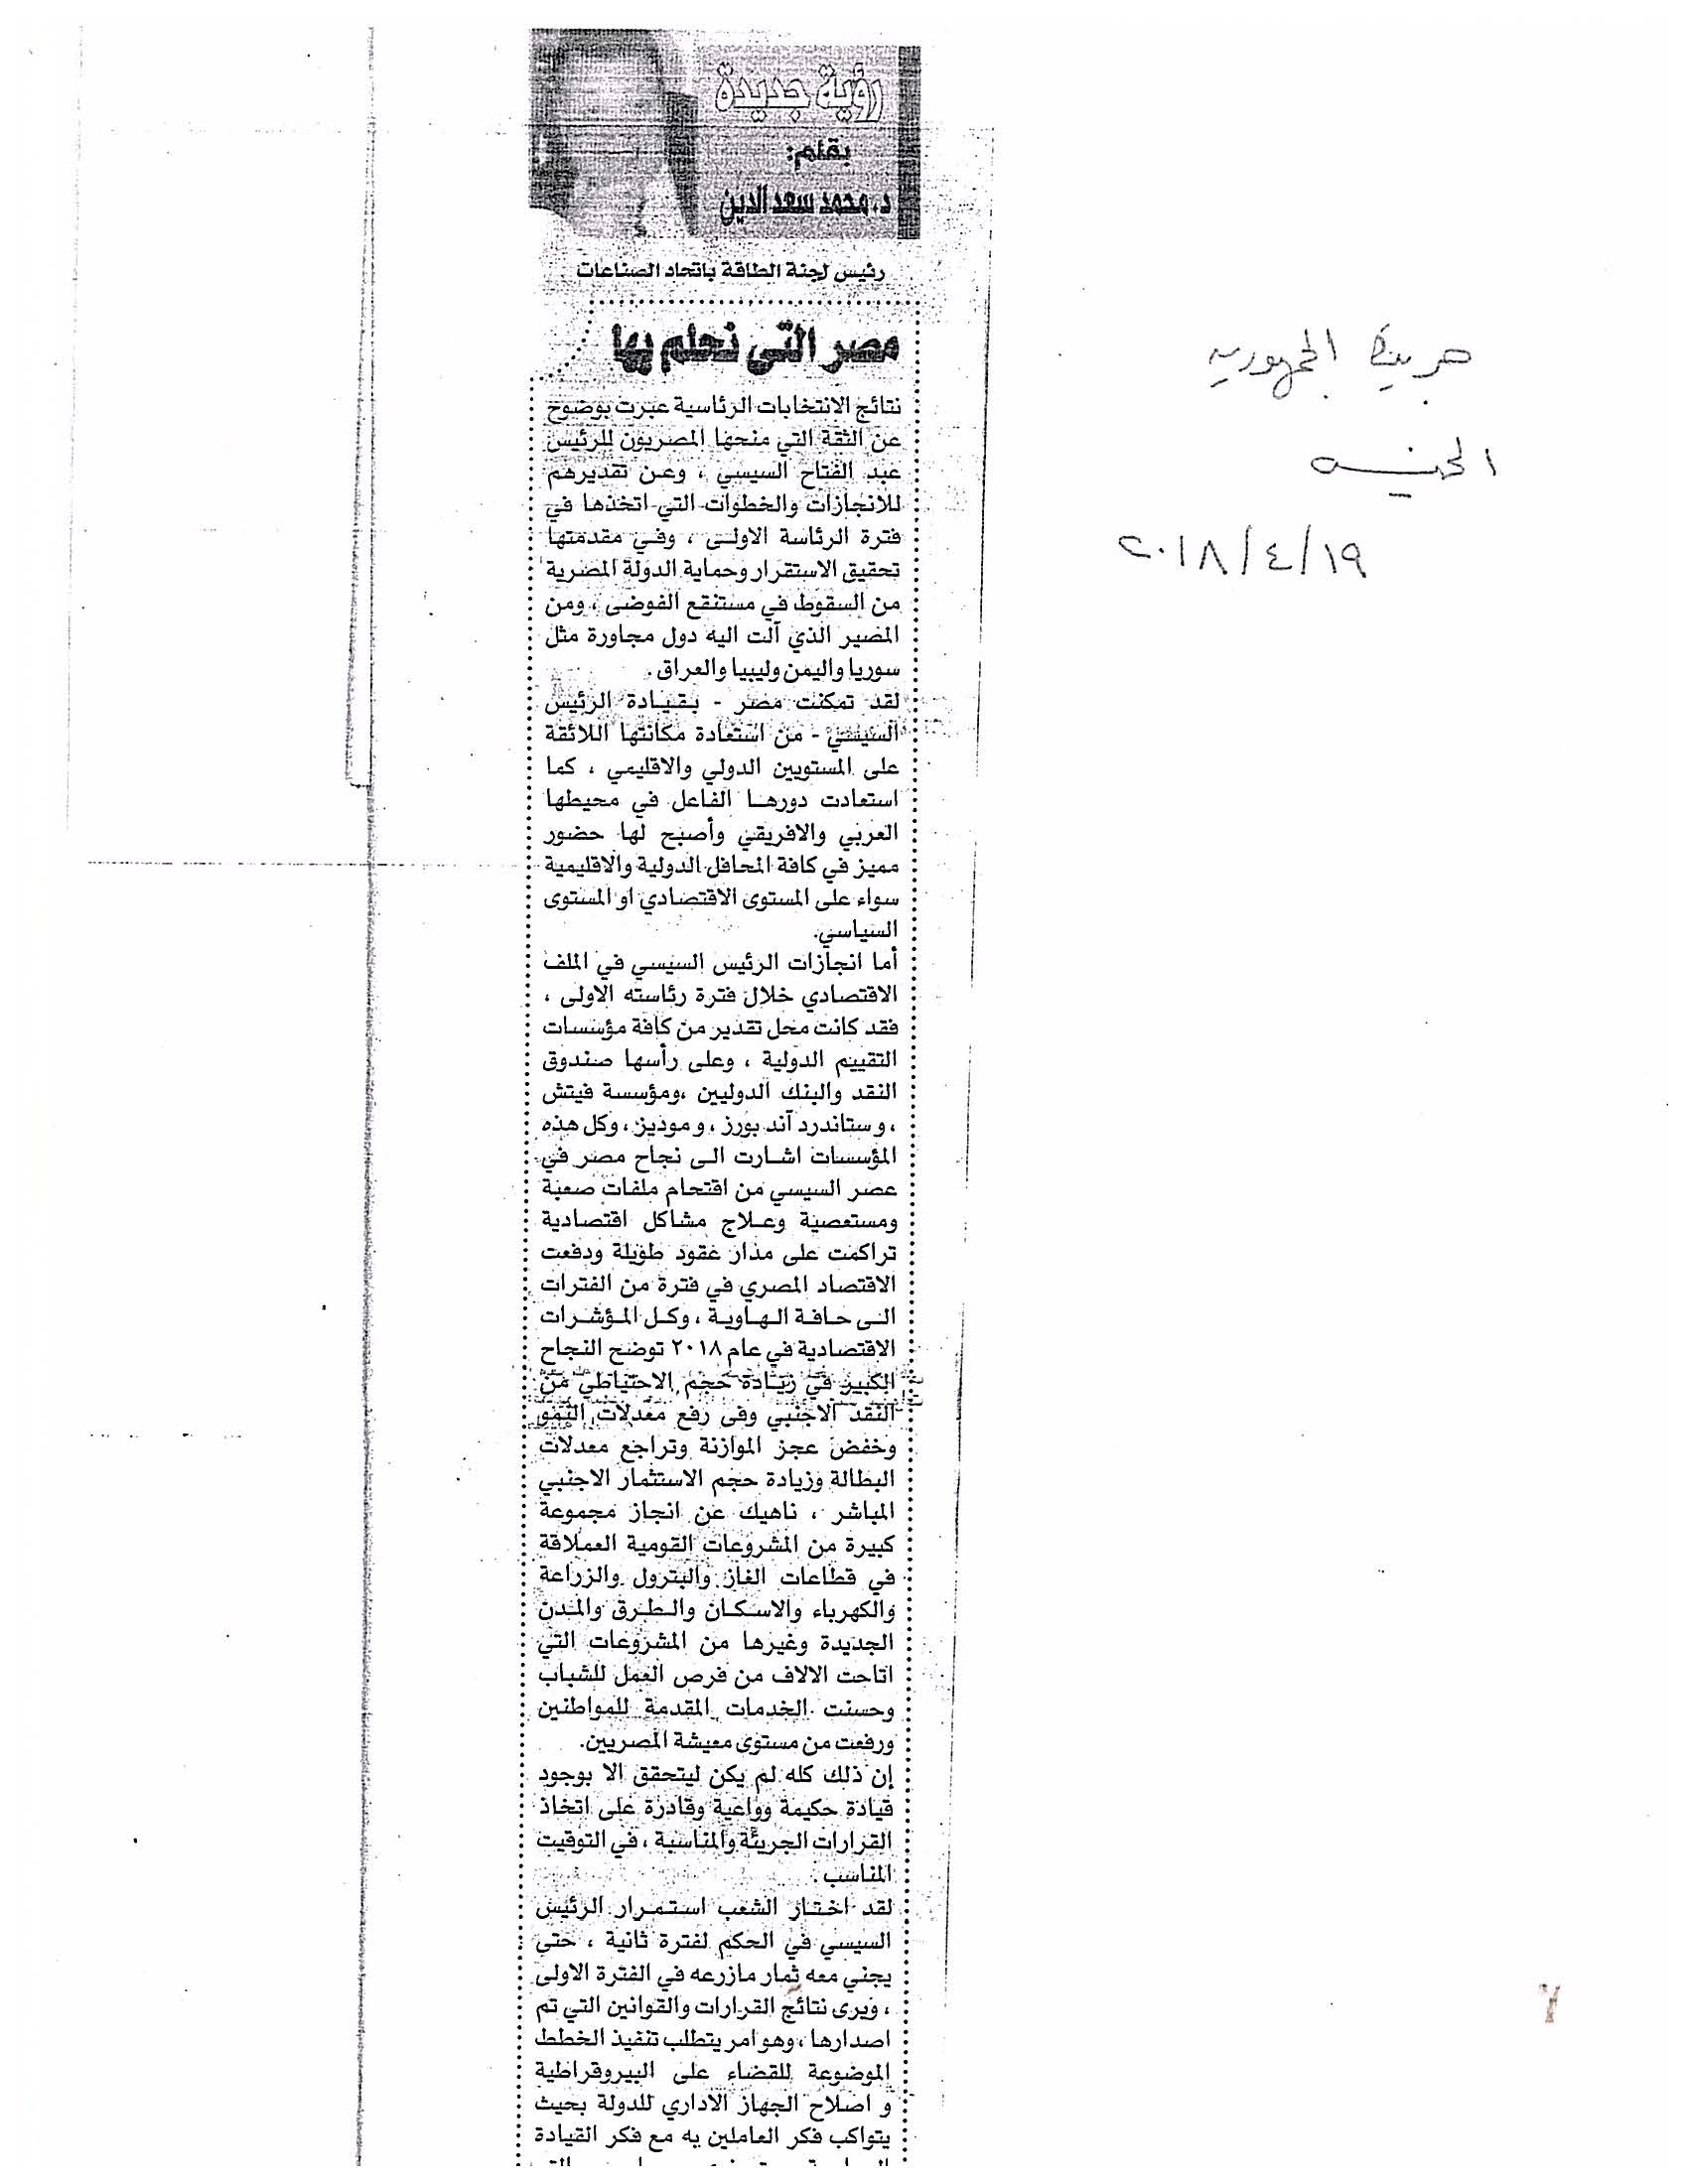 رؤية جديدة
بقلم:
د. محمد سعد الدين
رئيس لجنة الطاقة باتحاد الصناعات
مصر التي نحلم بها
نتائج الانتخابات الرئاسية عبرت بوضوح
عن الثقة التي منحها المصريون للرئيس
عبد الفتاح السيسي ، وعن تقديرهم
للانجازات والخطوات التي اتخذها في
فترة الرئاسة الاولى ، وفي مقدمتها
تحقيق الاستقرار وحماية الدولة المصرية
من السقوط في مستنقع الفوضى ، ومن
المصير الذي آلت اليه دول مجاورة مثل
سوريا واليمن وليبيا والعراق .
لقد تمكنت مصر - بقيادة الرئيس
السيسي - من استعادة مكانتها اللائقة
على المستويين الدولي والاقليمي ، كما
استعادت دورها الفاعل في محيطها
العربي والافريقي وأصبح لها حضور
مميز في كافة المحافل الدولية والاقليمية
سواء على المستوى الاقتصادي او المستوى
السياسي.
أما انجازات الرئيس السيسي في الملف
الاقتصادي خلال فترة رئاسته الاولى ،
فقد كانت محل تقدير من كافة مؤسسات
التقييم الدولية ، وعلى رأسها صندوق
النقد والبنك الدوليين ،ومؤسسة فيتش
، وستاندرد آند بورز ، وموديز ، وكل هذه
المؤسسات اشارت الى نجاح مصر في
عصر السيسي من اقتحام ملفات صعبة
ومستعصية وعلاج مشاكل اقتصادية
تراكمت على مدار عقود طويلة ودفعت
الاقتصاد المصري في فترة من الفترات
الى حافة الهاوية ، وكل المؤشرات
الاقتصادية في عام ٢٠١٨ توضح النجاح
الكبير في زيادة حجم الاحتياطي من
النقد الاجنبي وفى رفع معدلات النمو
وخفض عجز الموازنة وتراجع معدلات
البطالة وزيادة حجم الاستثمار الاجنبي
المباشر ، ناهيك عن انجاز مجموعة
كبيرة من المشروعات القومية العملاقة
في قطاعات الغاز والبترول والزراعة
والكهرباء والاسكان والطرق والمدن
الجديدة وغيرها من المشروعات التي
اتاحت الالاف من فرص العمل للشباب
وحسنت الخدمات المقدمة للمواطنين
ورفعت من مستوى معيشة المصريين.
إن ذلك كله لم يكن ليتحقق الا بوجود
قيادة حكيمة وواعية وقادرة على اتخاذ
القرارات الجريئة والمناسبة ، في التوقيت
المناسب .
لقد اختار الشعب استمرار الرئيس
السيسي في الحكم لفترة ثانية ، حتى
يجني معه ثمار مازرعه في الفترة الاولى
، ويرى نتائج القرارات والقوانين التي تم
اصدارها ، وهو امر يتطلب تنفيذ الخطط
الموضوعة للقضاء على البيروقراطية
و اصلاح الجهاز الاداري للدولة بحيث
يتواكب فكر العاملين به مع فكر القيادة
جريدة الجمهورية
٢٠١٨/٤/١٩